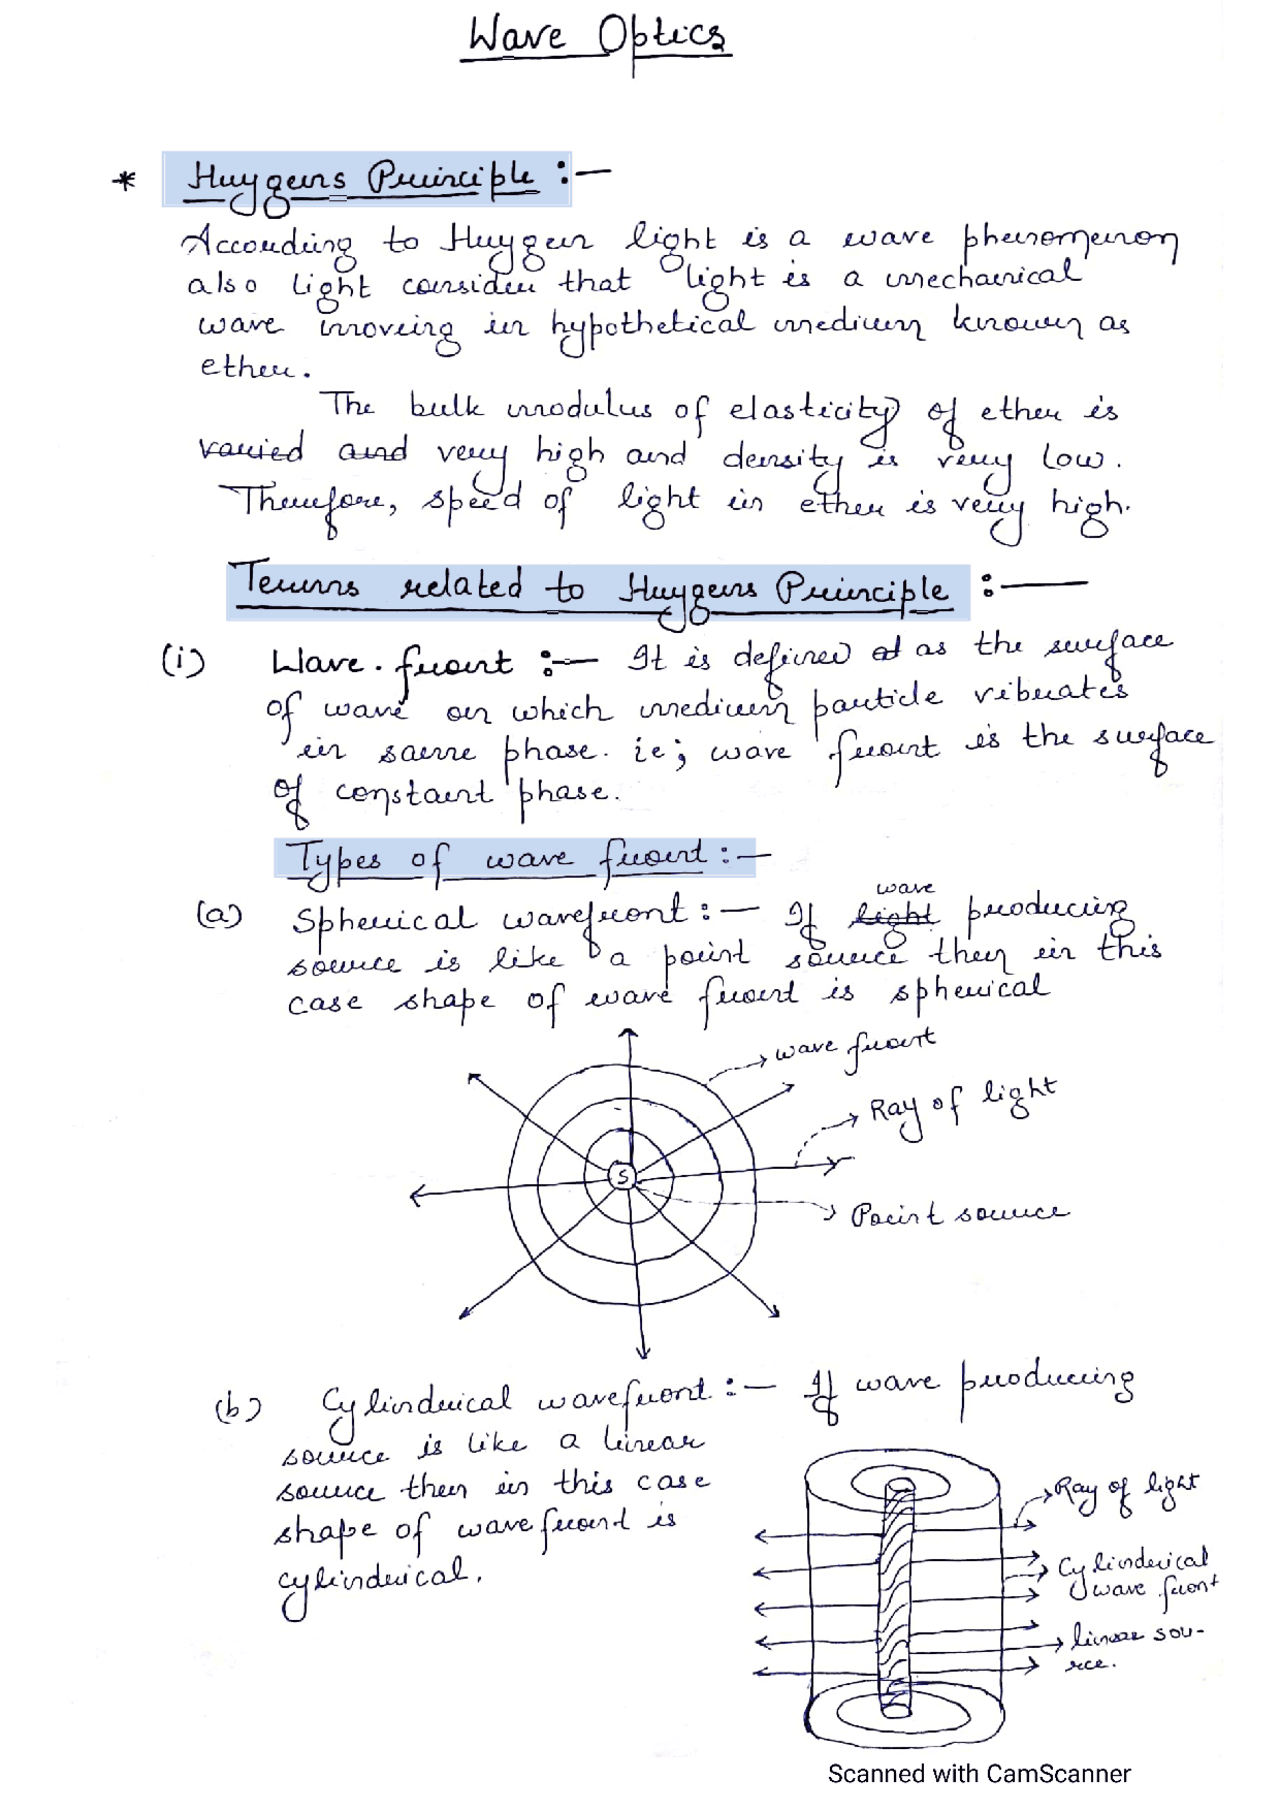 Wave Optics
* Huygens Principle :—
According to Huygen light is a wave phenomenon
also light consider that light is a mechanical
wave moving in hypothetical medium known as
ether.
The bulk modulus of elasticity of ether is
varied and very high and density is very low.
Therefore, speed of light in ether is very high.
Terms related to Huygens Principle :—
(i) Wave.front :— It is defined at as the surface
of wave on which medium particle vibrates
in same phase. ie; wave front is the surface
of constant phase.
Types of wave front :—
wave
(a) Spherical wavefront :— If light producing
source is like a point source then in this
case shape of wave front is spherical
wave front
Ray of light
S
Point source
(b) Cylindrical wavefront :— If wave producing
source is like a linear
source then in this case
shape of wavefront is
cylindrical.
Ray of light
Cylindrical
wave front
linear sou-
rce.
Scanned with CamScanner